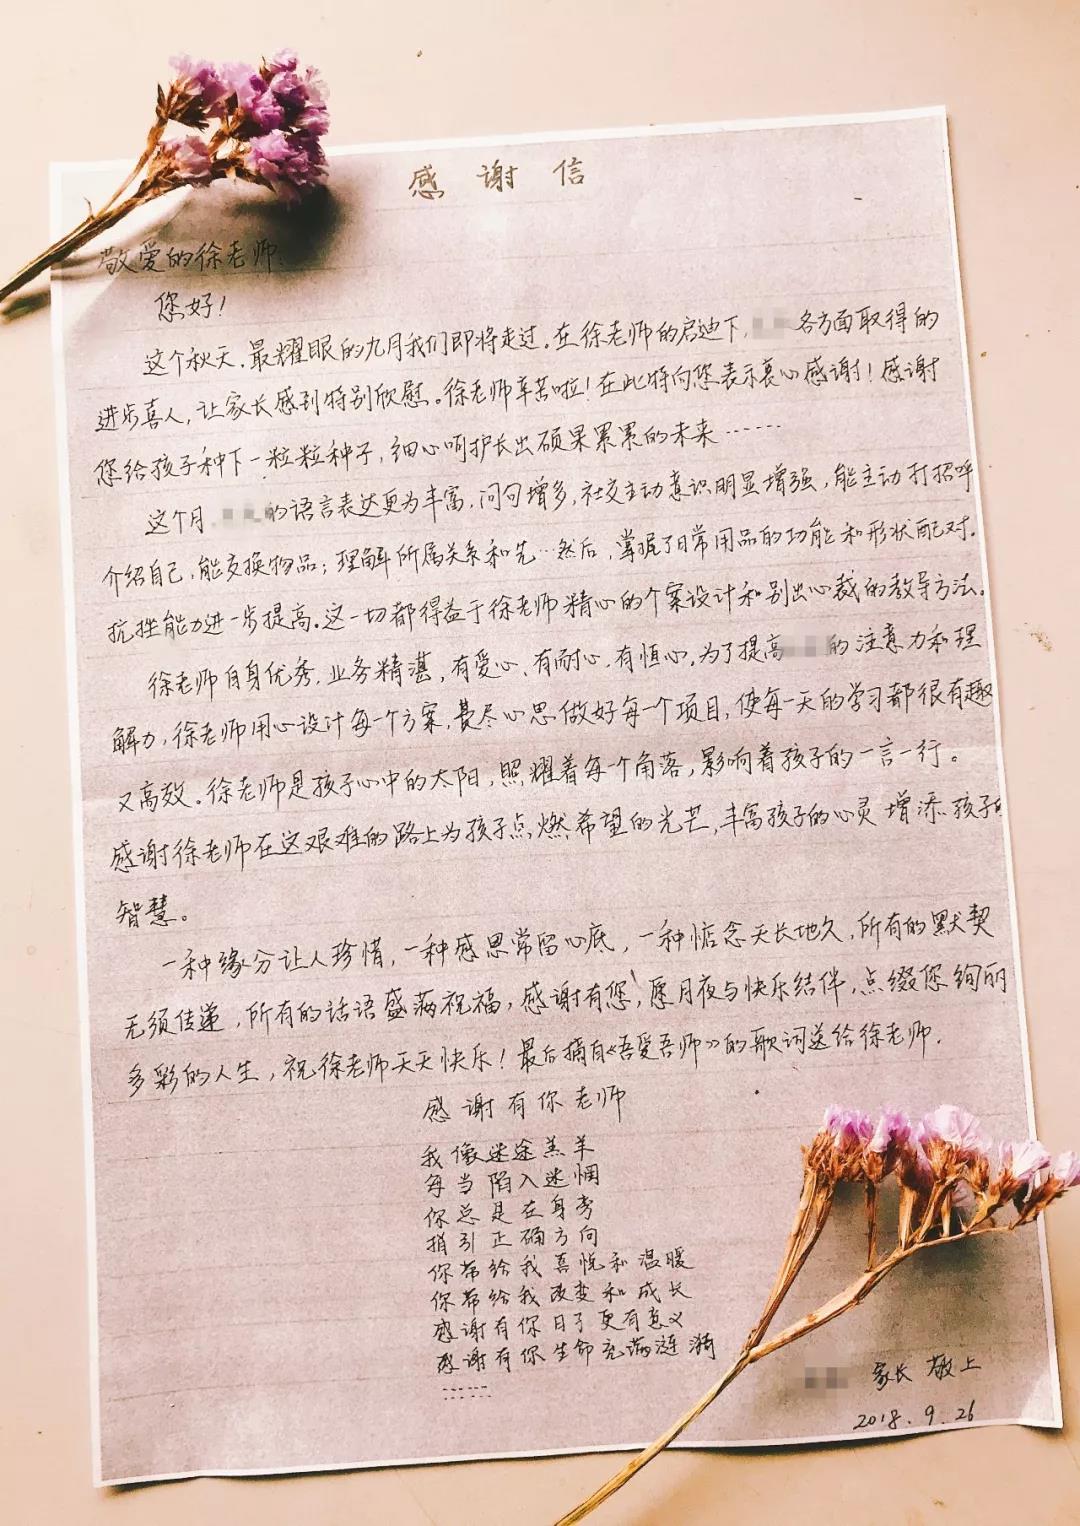 感谢信
敬爱的徐老师：
您好！
这个秋天，最耀眼的九月我们即将走过。在徐老师的启迪下，各方面取得的
进步喜人，让家长感到特别欣慰。徐老师辛苦啦！在此特向您表示衷心感谢！感谢
您给孩子种下一粒粒种子，细心呵护长出硕果累累的未来……
这个月，的语言表达更为丰富，问句增多，社交主动意识明显增强，能主动打招呼
介绍自己，能交换物品；理解所属关系和先…然后，掌握了日常用品的功能和形状配对，
抗挫能力进一步提高。这一切都得益于徐老师精心的个案设计和别出心裁的教导方法。
徐老师自身优秀，业务精湛，有爱心、有耐心、有恒心，为了提高的注意力和理
解力，徐老师用心设计每一个方案，费尽心思做好每一个项目，使每一天的学习都很有趣
又高效。徐老师是孩子心中的太阳，照耀着每个角落，影响着孩子的一言一行。
感谢徐老师在这艰难的路上为孩子点燃希望的光芒，丰富孩子的心灵增添孩子的
智慧。
一种缘分让人珍惜，一种感恩常留心底，一种惦念天长地久，所有的默契
无须传递，所有的话语盛满祝福，感谢有您，愿月夜与快乐结伴，点缀您绚丽
多彩的人生，祝徐老师天天快乐！最后摘自《吾爱吾师》的歌词送给徐老师．
感谢有你老师
我像迷途羔羊
每当陷入迷惘
你总是在身旁
指引正确方向
你带给我喜悦和温暖
你带给我改变和成长
感谢有你日子更有意义
感谢有你生命充满涟漪
……
家长 敬上
2018.9.26